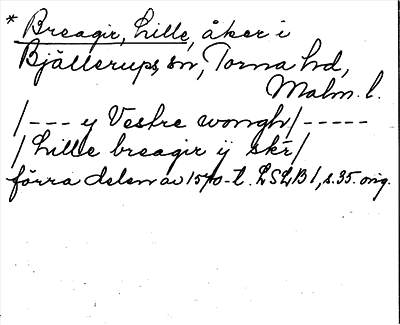 * Breagir, Lille, åker i
Bjällerups sn, Torna hd,
Malm. l.
/--- y Vestre wongh/-----
/ Lille breagir ÿ skr̄/
förra delen av 1570-t. LSLB 1, s. 35. orig.